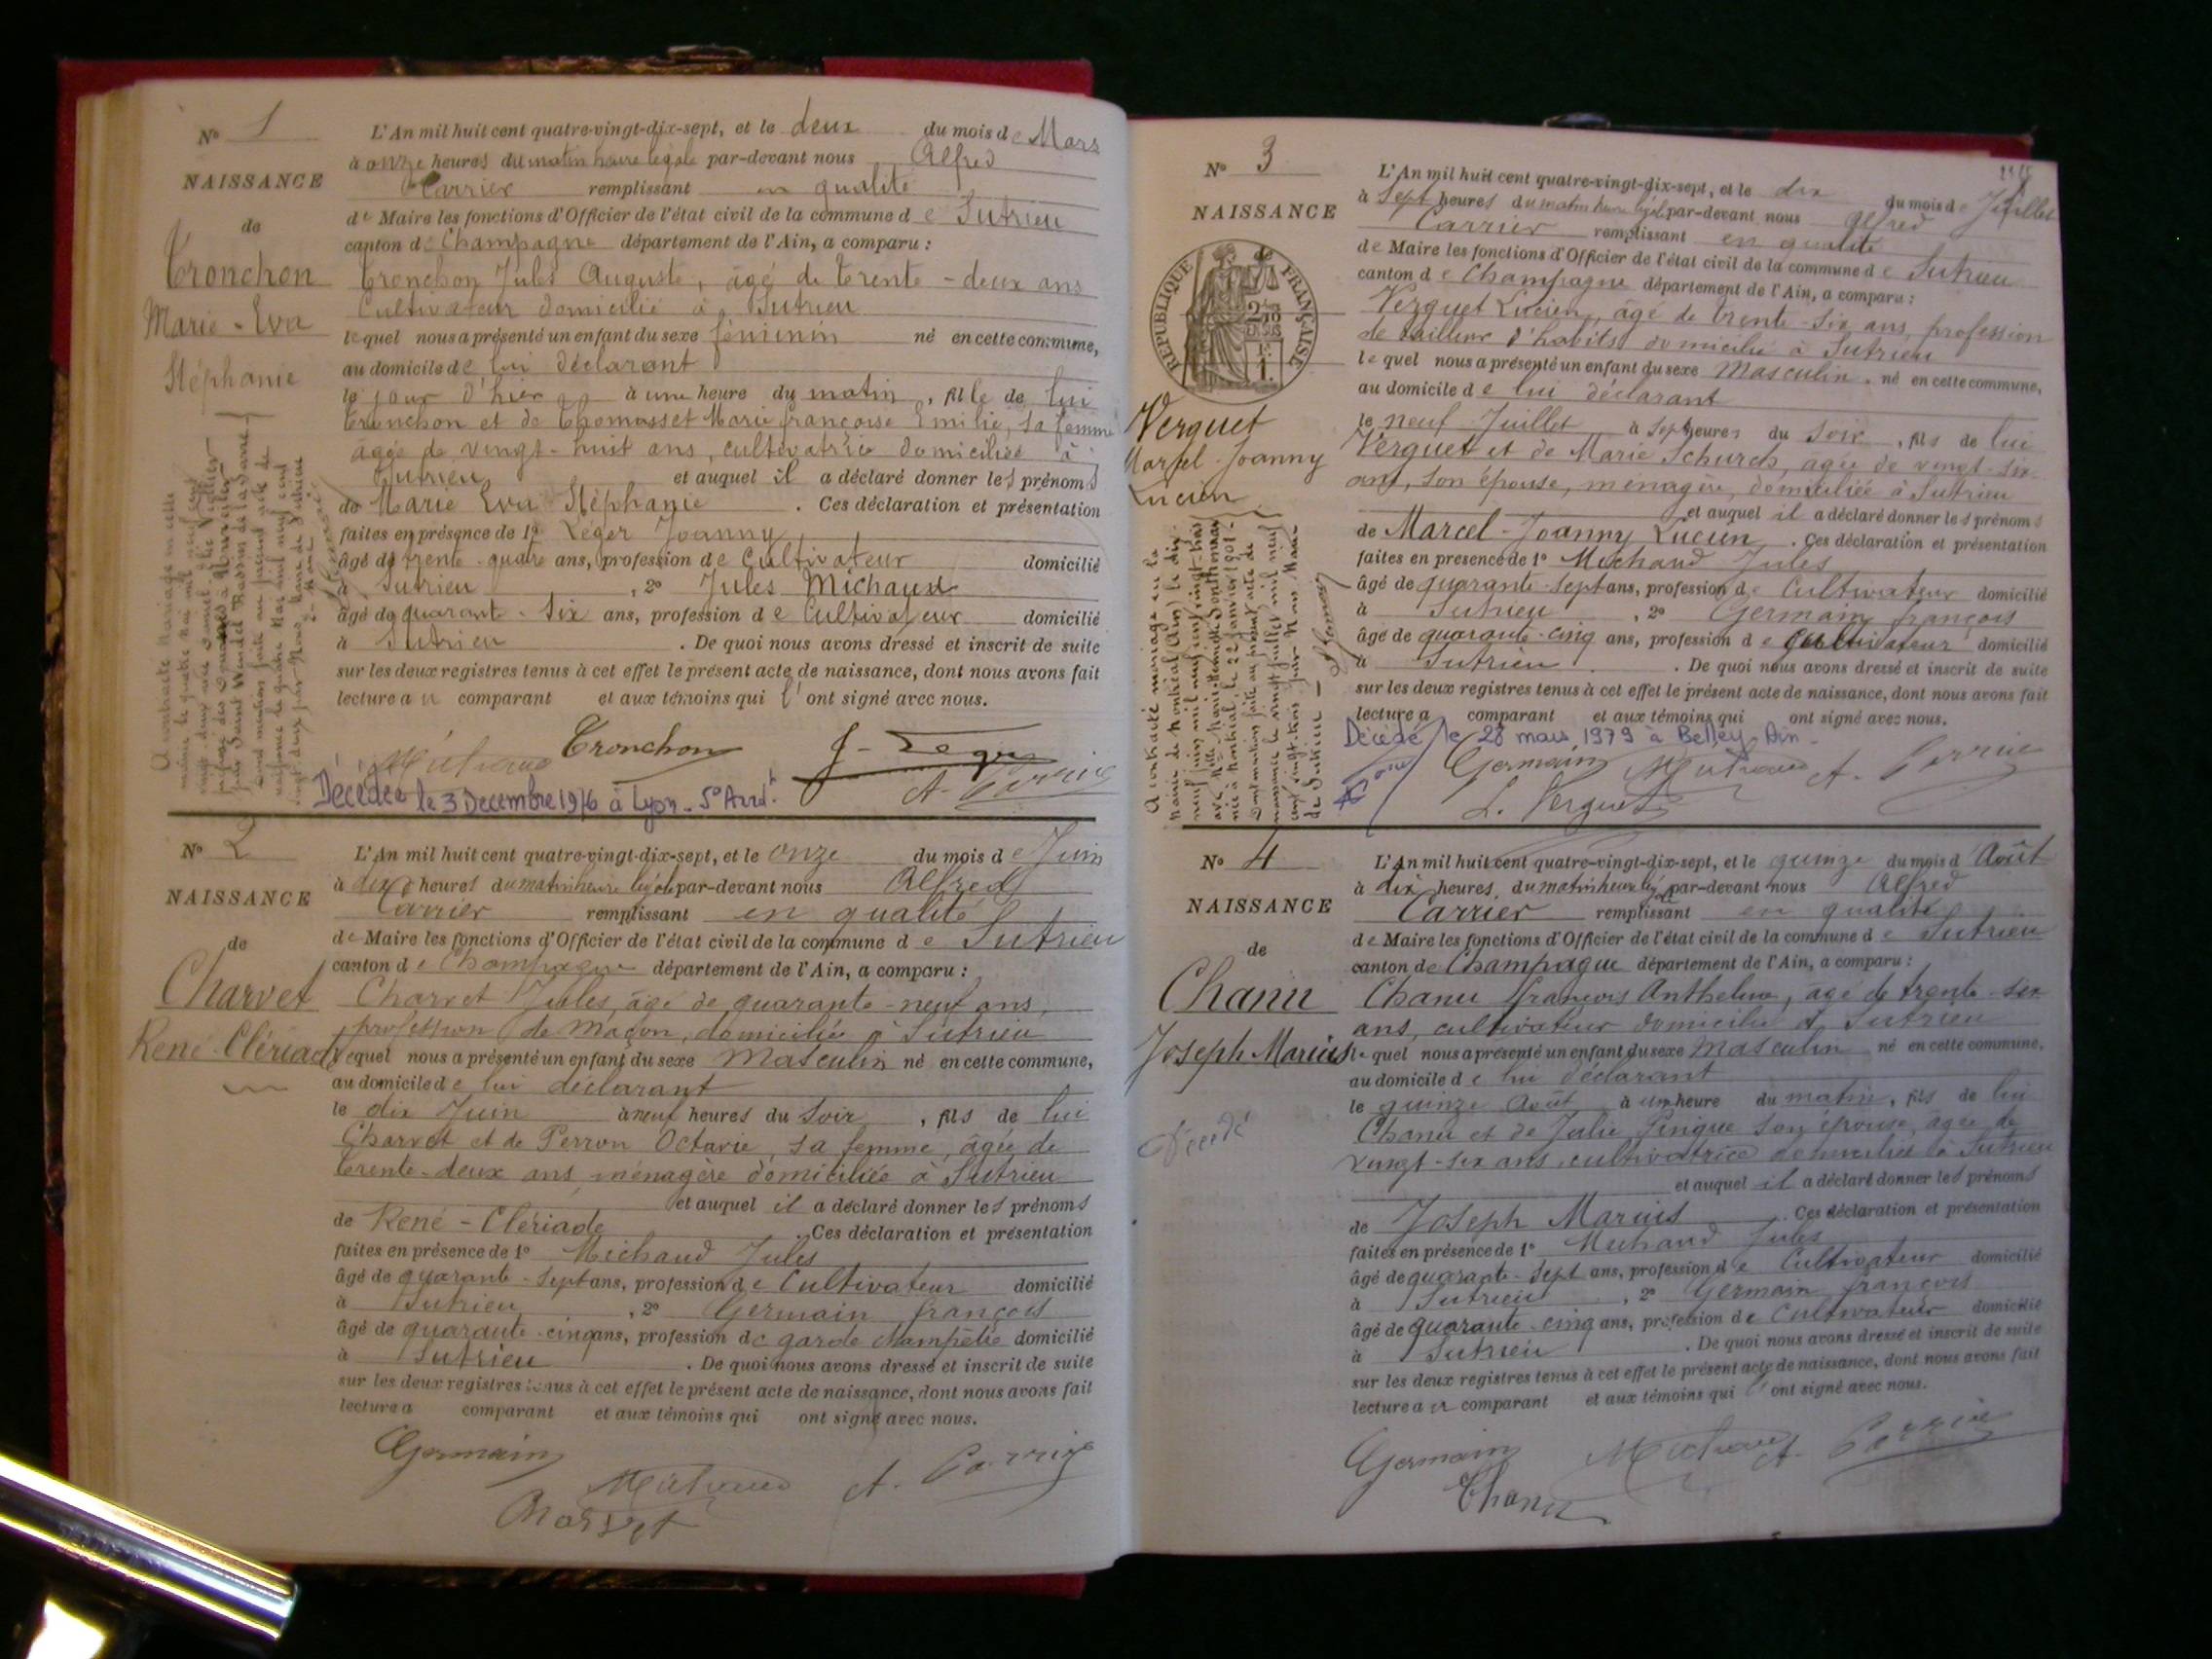 N° 1
NAISSANCE
de
Tronchon
Marie-Eva
Stéphanie
L'An mil huit cent quatre-vingt-dix-sept, et le deux du mois de Mars
à onze heures du matin heure légale par-devant nous Alfred
Carrier remplissant en qualité
de Maire les fonctions d'Officier de l'état civil de la commune de Sutrieu
canton de Champagne département de l'Ain, a comparu :
Tronchon Jules Auguste, âgé de trente-deux ans
Cultivateur domicilié à Sutrieu
lequel nous a présenté un enfant du sexe féminin né en cette commune,
au domicile de lui déclarant
le jour d'hier à une heure du matin, fille de lui
Tronchon et de Thomasset Marie françoise Emilie, sa femme
âgée de vingt-huit ans, cultivatrice domiciliée à
Sutrieu et auquel il a déclaré donner les prénoms
de Marie Eva Stéphanie. Ces déclaration et présentation
faites en présence de 1° Léger Joanny
âgé de trente-quatre ans, profession de Cultivateur domicilié
à Sutrieu, 2° Jules Michaud
âgé de quarant-six ans, profession de Cultivateur domicilié
à Sutrieu. De quoi nous avons dressé et inscrit de suite
sur les deux registres tenus à cet effet le présent acte de naissance, dont nous avons fait
lecture au comparant et aux témoins qui l'ont signé avec nous.
Michaud Tronchon J-Léger
A. Carrier
Décédée le 3 Decembre 1976 à Lyon - 5° Arrdt
N° 2
NAISSANCE
de
Charvet
René-Clériade
L'An mil huit cent quatre-vingt-dix-sept, et le onze du mois de Juin
à dix heures du matin heure légale par-devant nous Alfred
Carrier remplissant en qualité
de Maire les fonctions d'Officier de l'état civil de la commune de Sutrieu
canton de Champagne département de l'Ain, a comparu :
Charvet Jules, âgé de quarante-neuf ans,
profession de maçon, domicilié à Sutrieu
lequel nous a présenté un enfant du sexe Masculin né en cette commune,
au domicile de lui déclarant
le dix Juin à neuf heures du Soir, fils de lui
Charvet et de Perron Octavie, sa femme, âgée de
trente-deux ans, ménagère domiciliée à Sutrieu
et auquel il a déclaré donner les prénoms
de René-Clériade. Ces déclaration et présentation
faites en présence de 1° Michaud Jules
âgé de quarante-sept ans, profession de Cultivateur domicilié
à Sutrieu, 2° Germain françois
âgé de quarante-cinq ans, profession de garde champêtre domicilié
à Sutrieu. De quoi nous avons dressé et inscrit de suite
sur les deux registres tenus à cet effet le présent acte de naissance, dont nous avons fait
lecture a comparant et aux témoins qui ont signé avec nous.
Germain
Michaud A. Carrier
Charvet
N° 3
NAISSANCE
REPUBLIQUE FRANÇAISE
Verguet
Marcel-Joanny
Lucien
L'An mil huit cent quatre-vingt-dix-sept, et le dix du mois de Juillet
à Sept heures du matin heure légale par-devant nous Alfred
Carrier remplissant en qualité
de Maire les fonctions d'Officier de l'état civil de la commune de Sutrieu
canton de Champagne département de l'Ain, a comparu :
Verguet Lucien, âgé de trente-six ans, profession
de tailleur d'habits domicilié à Sutrieu
lequel nous a présenté un enfant du sexe Masculin, né en cette commune,
au domicile de lui déclarant
le neuf Juillet à Sept heures du Soir, fils de lui
Verguet et de Marie Schurch, âgée de vingt-six
ans, son épouse, ménagère, domiciliée à Sutrieu
et auquel il a déclaré donner les prénoms
de Marcel-Joanny Lucien. Ces déclaration et présentation
faites en présence de 1° Michaud Jules
âgé de quarante-sept ans, profession de Cultivateur domicilié
à Sutrieu, 2° Germain françois
âgé de quarante-cinq ans, profession de Cultivateur domicilié
à Sutrieu. De quoi nous avons dressé et inscrit de suite
sur les deux registres tenus à cet effet le présent acte de naissance, dont nous avons fait
lecture a comparant et aux témoins qui ont signé avec nous.
Décédé le 28 mars 1979 à Belley Ain
Germain Michaud A. Carrier
L. Verguet
N° 4
NAISSANCE
de
Chanu
Joseph Marius
Décédé
L'An mil huit cent quatre-vingt-dix-sept, et le quinze du mois d'Août
à dix heures du matin heure légale par-devant nous Alfred
Carrier remplissant en qualité
de Maire les fonctions d'Officier de l'état civil de la commune de Sutrieu
canton de Champagne département de l'Ain, a comparu :
Chanu françois Anthelme, âgé de trente-six
ans, cultivateur domicilié à Sutrieu
lequel nous a présenté un enfant du sexe Masculin né en cette commune,
au domicile de lui déclarant
le quinze Août à une heure du matin, fils de lui
Chanu et de Julie Pingue son épouse, âgée de
vingt-six ans, cultivatrice domiciliée à Sutrieu
et auquel il a déclaré donner les prénoms
de Joseph Marius. Ces déclaration et présentation
faites en présence de 1° Michaud Jules
âgé de quarante-sept ans, profession de Cultivateur domicilié
à Sutrieu, 2° Germain françois
âgé de quarante-cinq ans, profession de Cultivateur domicilié
à Sutrieu. De quoi nous avons dressé et inscrit de suite
sur les deux registres tenus à cet effet le présent acte de naissance, dont nous avons fait
lecture au comparant et aux témoins qui ont signé avec nous.
Germain Michaud A. Carrier
Chanu